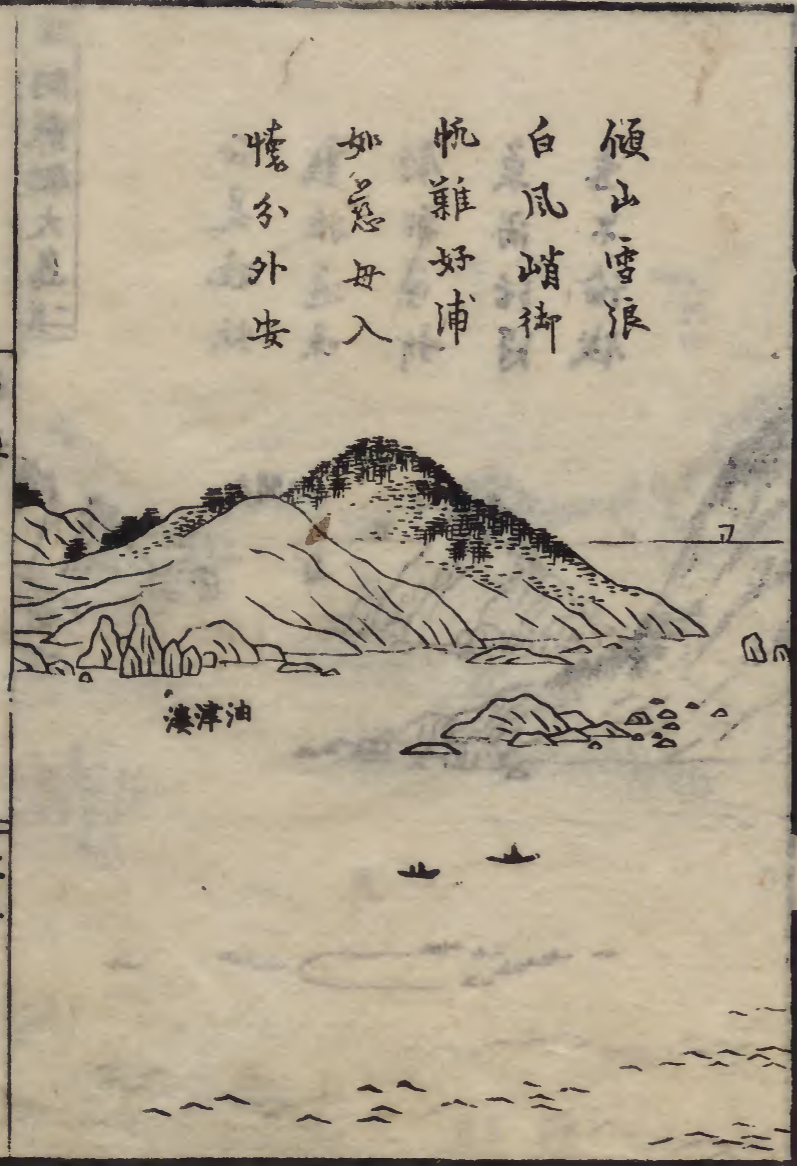 傾山雪浪
白風峭御
帆難好浦
如慈母入
懐分外安
油津湊